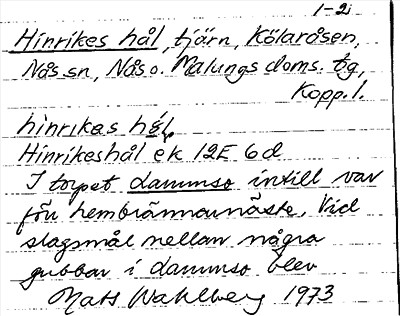 1-2
Hinrikes hål, tjärn, Kölaråsen,
Nås sn, Nås o. Malungs doms. tg,
Kopp. l.
hinrikas hǻl
Hinrikeshål ek 12E 6d
I torpet dammso intill var
förr hembrännarnäste. Vid
slagsmål mellan några
gubbar i dammso blev
Mats Wahlberg 1973